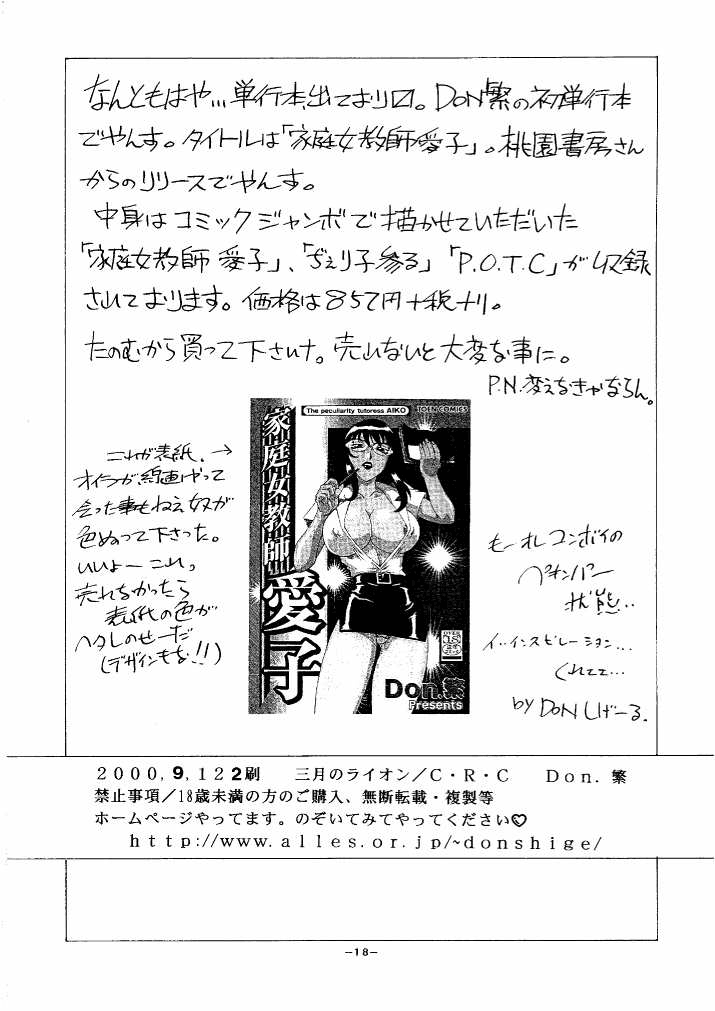 なんともはや…単行本出ております。DON繁の初単行本
でやんす。タイトルは「家庭女教師愛子」。桃園書房さん
からのリリースでやんす。
中身はコミックジャンボで描かせていただいた
「家庭女教師 愛子」、「ぢぇり子参る」「P.O.T.C」が収録
されております。価格は857円+税+り。
たのむから買って下さいな。売れないと大変な事に。
P.N.変えなきゃならん。
The peculiarity tutoress AIKO
TOEN COMICS
家庭女教師
愛子
Don.繁
Presents
これが表紙、→
オイラが線画やって
会った事もねえ奴が
色ぬって下さった。
いいよーこれっ
売れなかったら
表紙の色が
ヘタレのせーだ
(デザインもな!!)
もーれコンボイの
ペキンパー
状態…
イ…インスピレーション…
くれてて…
by DON しげーる.
2000,9,12 2刷 三月のライオン/C・R・C Don. 繁
禁止事項/18歳未満の方のご購入、無断転載・複製等
ホームページやってます。のぞいてみてやってください♡
http://www.alles.or.jp/~donshige/
-18-